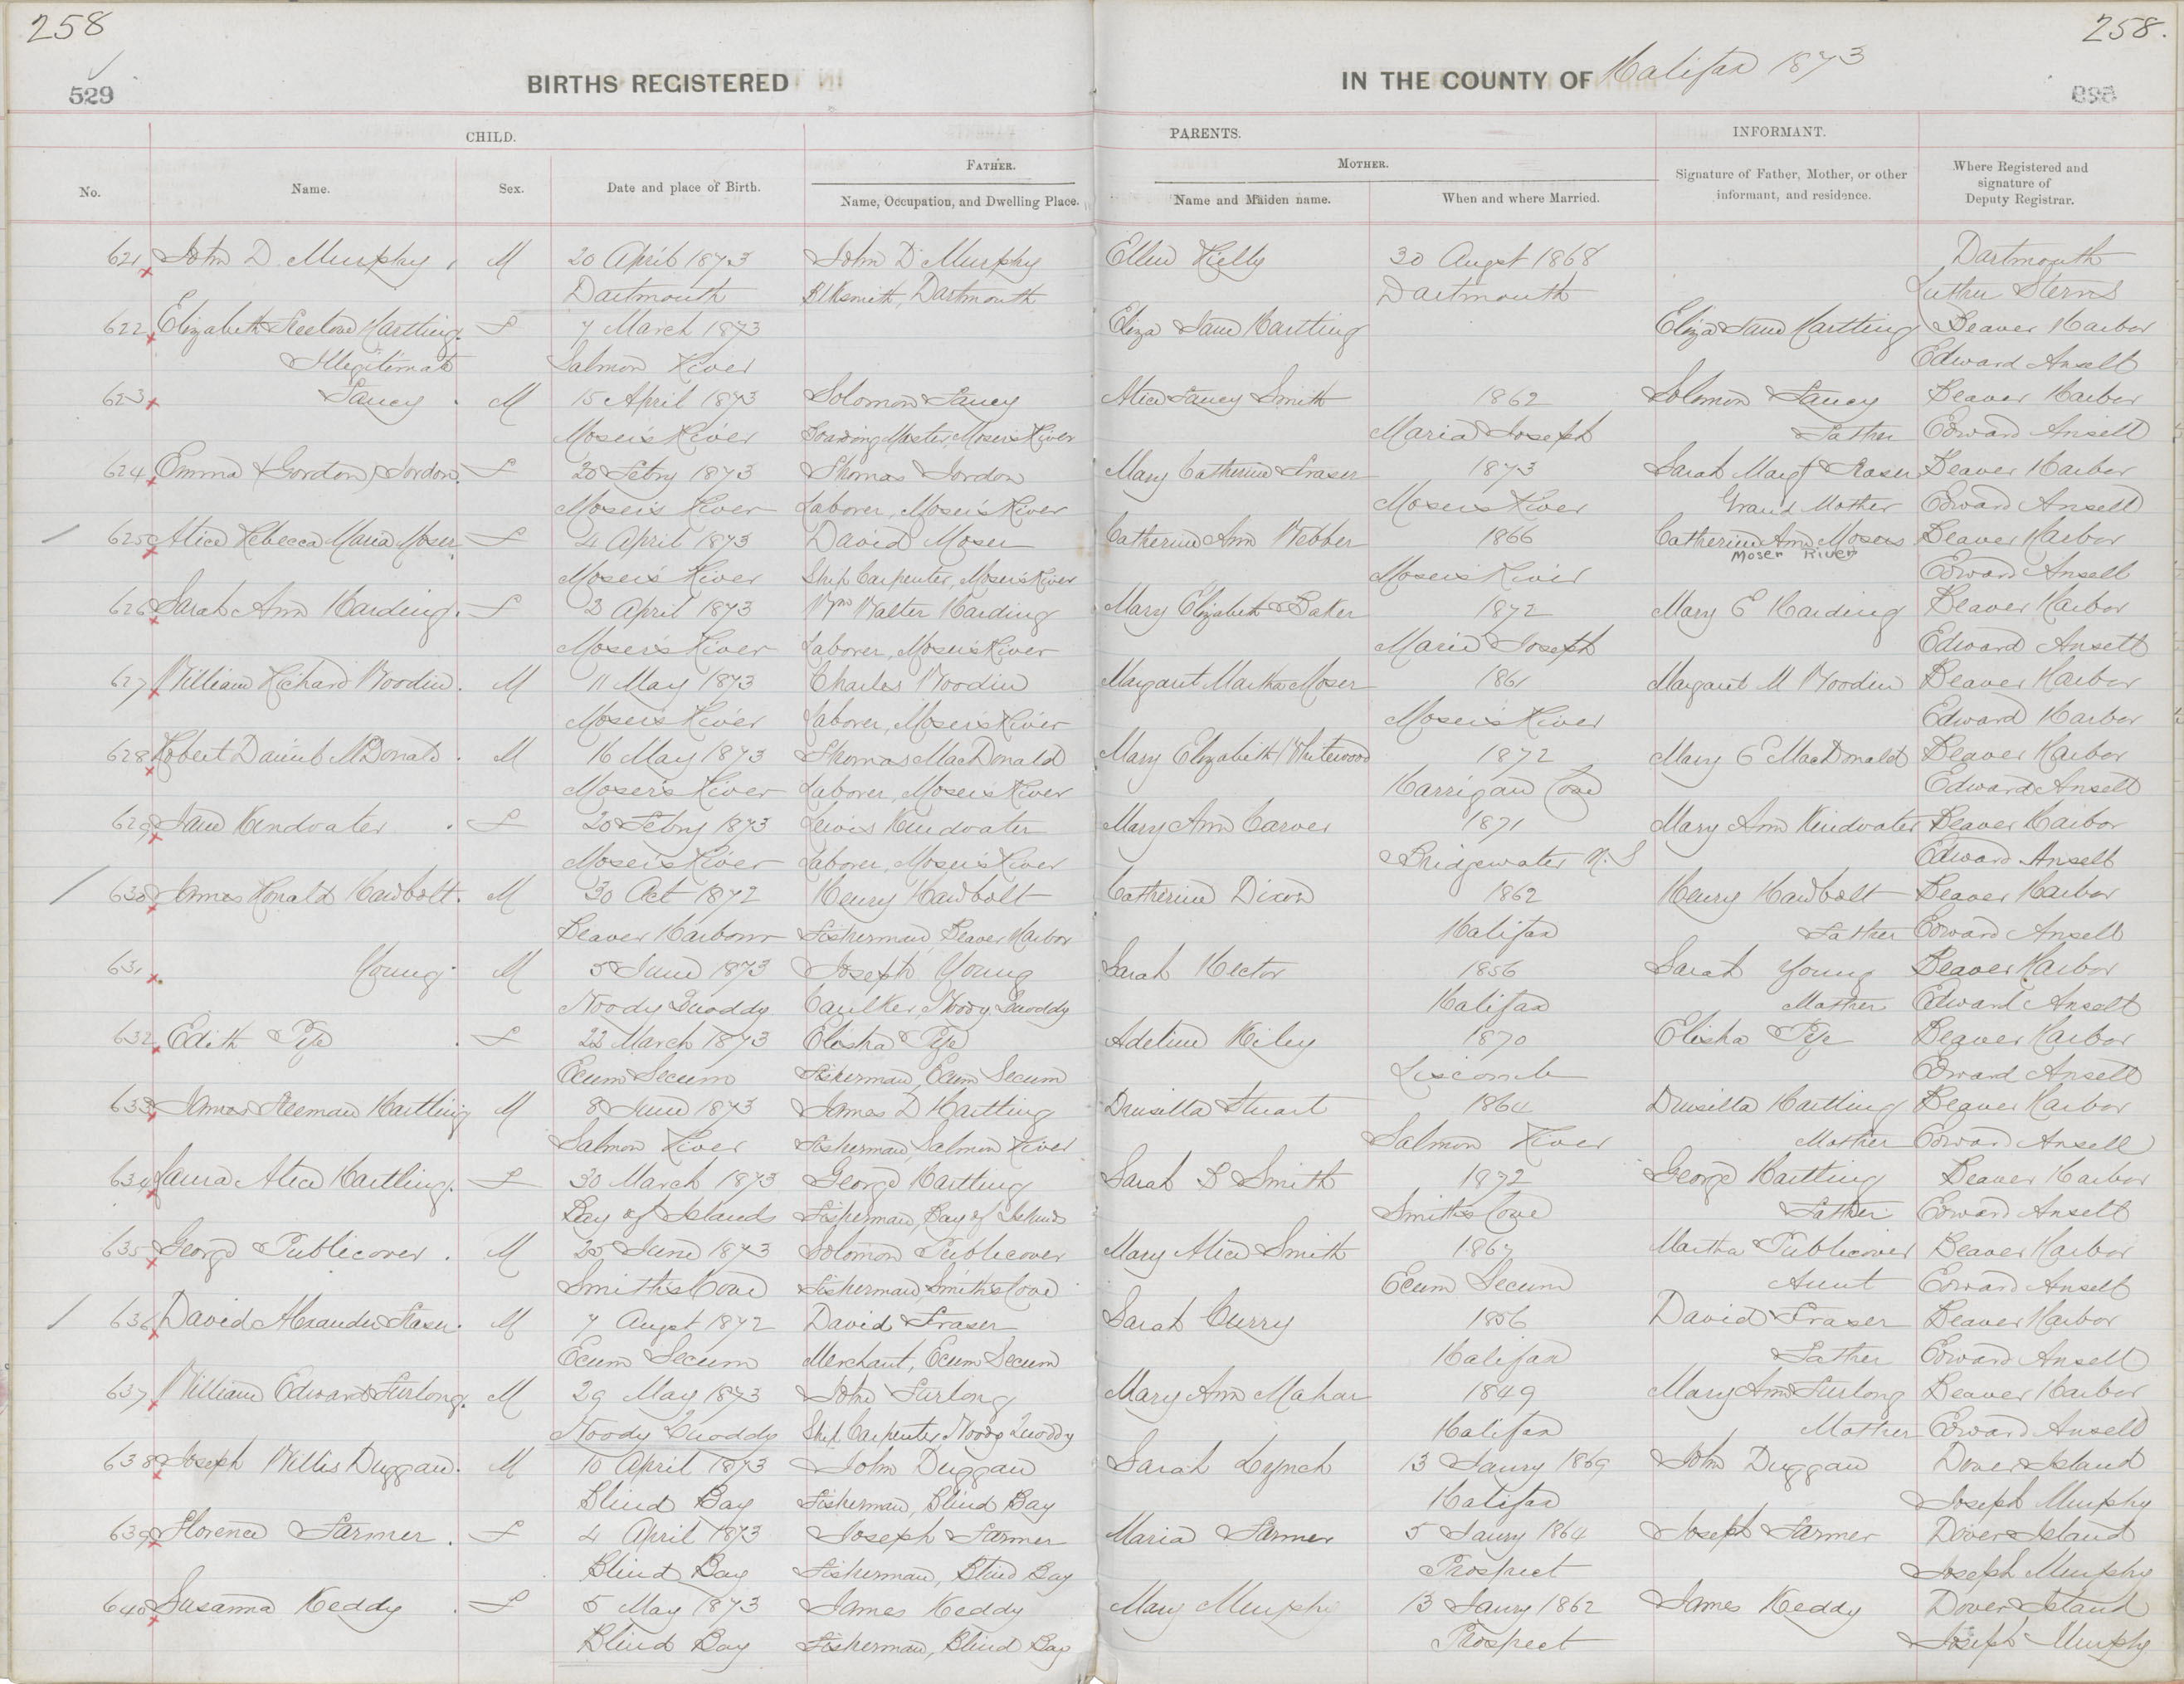 258
258.
529
BIRTHS REGISTERED
IN THE COUNTY OF Halifax 1873
CHILD.
PARENTS.
INFORMANT.
No.
Name.
Sex.
Date and place of Birth.
FATHER.
Name, Occupation, and Dwelling Place.
MOTHER.
Name and Maiden name.
When and where Married.
Signature of Father, Mother, or other
informant, and residence.
Where Registered and
signature of
Deputy Registrar.
621 John D. Murphy M 20 April 1873 John D Murphy Ellen Kelly 30 Augst 1868 Dartmouth
Dartmouth Blksmith, Dartmouth Dartmouth Luther Sterns
622 Elizabeth Hartling. F 7 March 1873 Eliza Jane Hartling Eliza Jane Hartling Beaver Harbor
Illegitimate Salmon River Edward Ansell
623 Jancy M 15 April 1873 Solomon Jancy Alice Jancy Smith 1862 Solomon Jancy Beaver Harbor
Moser's River Moser's River Maria Joseph Father Edward Ansell
624 Emma (Gordon) Jordon. F 20 Febry 1873 Thomas Jordon Mary Catherine Fraser 1873 Sarah Margt Fraser Beaver Harbor
Moser's River Laborer, Moser's River Moser's River Grand Mother Edward Ansell
625 Alice Rebecca Maria Moser F 4 April 1873 David Moser Catherine Ann Webber 1866 Catherine Ann Mosers Beaver Harbor
Moser River
Moser's River Ship Carpenter, Moser's River Moser's River Edward Ansell
626 Sarah Ann Harding. F 3 April 1873 Wm Walter Harding Mary Elizabeth Baker 1872 Mary E Harding Beaver Harbor
Moser's River Laborer, Moser's River Marie Joseph Edward Ansell
627 William Richard Woodin. M 11 May 1873 Charles Woodin Margaret Martha Moser 1861 Margaret M Woodin Beaver Harbor
Moser's River Laborer, Moser's River Moser's River Edward Harbor
628 Robert Daniel McDonald. M 16 May 1873 Thomas MacDonald Mary Elizabeth Whitewood 1872 Mary E MacDonald Beaver Harbor
Moser's River Laborer, Moser's River Harrigan Cove Edward Ansell
629 Jane Hendvater. F 20 Febry 1873 Lewis Mary Ann Carver 1871 Mary Ann Beaver Harbor
Moser's River Laborer, Moser's River Bridgewater N.S Edward Ansell
630 James Ronald Hawbolt. M 30 Oct 1872 Henry Hawbolt Catherine Dixon 1862 Henry Hawbolt Beaver Harbor
Beaver Harbour Fisherman, Beaver Harbor Halifax Father Edward Ansell
631 Young M 5 June 1873 Joseph Young Sarah Hector 1856 Sarah Young Beaver Harbor
Noody Quoddy Caulker, Noody Quoddy Halifax Mother Edward Ansell
632 Edith Pye F 22 March 1873 Elisha Pye Adeline Riley 1870 Elisha Pye Beaver Harbor
Ecum Secum Fisherman, Ecum Secum Liscomb Edward Ansell
633 James Freeman Hartling M 8 June 1873 James D Hartling Drusilla Stuart 1864 Drusilla Hartling Beaver Harbor
Salmon River Fisherman, Salmon River Salmon River Mother Edward Ansell
634 Laura Alice Hartling. F 30 March 1873 George Hartling Sarah B Smith 1872 George Hartling Beaver Harbor
Bay of Islands Fisherman, Bay of Islands Smiths Cove Father Edward Ansell
635 George Publicover. M 25 June 1873 Solomon Publicover Mary Alice Smith 1867 Martha Publicover Beaver Harbor
Smith's Cove Fisherman, Smiths Cove Ecum Secum Aunt Edward Ansell
636 David Alexander Fraser. M 7 Augst 1872 David Fraser Sarah Curry 1856 David Fraser Beaver Harbor
Ecum Secum Merchant, Ecum Secum Halifax Father Edward Ansell
637 William Edward Furlong. M 29 May 1873 John Furlong Mary Ann Mahar 1849 Mary Ann Furlong Beaver Harbor
Noody Quoddy Ship Carpenter, Noody Quoddy Halifax Mother Edward Ansell
638 Joseph Willis Duggan. M 10 April 1873 John Duggan Sarah Lynch 13 Janry 1869 John Duggan Dover Island
Blind Bay Fisherman, Blind Bay Halifax Joseph Murphy
639 Florence Farmer. F 4 April 1873 Joseph Farmer Maria Farmer 5 Janry 1864 Joseph Farmer Dover Island
Blind Bay Fisherman, Blind Bay Prospect Joseph Murphy
640 Susanna Keddy. F 5 May 1873 James Keddy Mary Murphy 13 Janry 1862 James Keddy Dover Island
Blind Bay Fisherman, Blind Bay Prospect Joseph Murphy